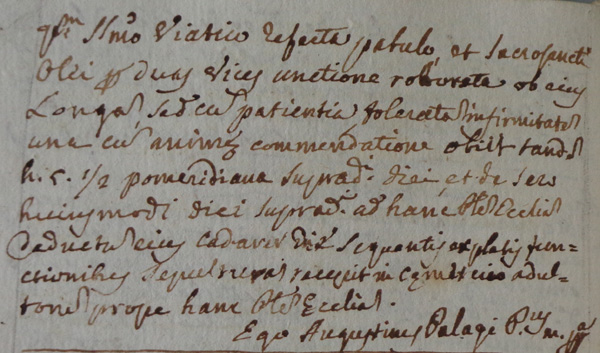 qm. SSmo Viatico refecta patulo, et Sacrosancti
Olei p duas vices unctione roborata ob eius
Longā, sed cū patientia toleratā infirmitatē
una cū animæ commendatione obiit tandē
h. 5. 1/2 pomeridiana suprad. diei, et de sero
huiusmodi diei suprad. ad hanc Plē Eccliā
deductū eius cadaver Die sequenti expletis fun-
ctionibus sepulturā recepit in cœmeterio adul-
torū prope hanc Plē Eccliā.
Ego Augustinus Palagi P.us m. pa